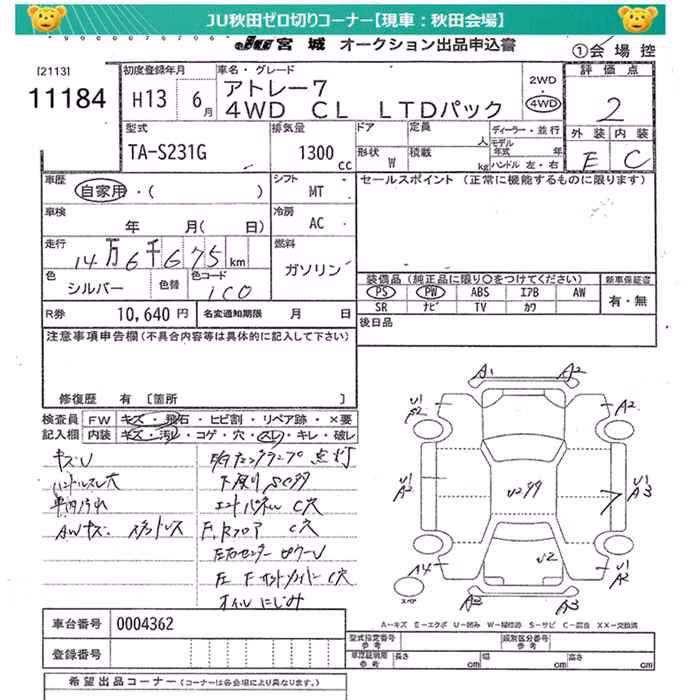 JU秋田ゼロ切りコーナー【現車：秋田会場】
JU 宮城 オークション出品申込書
①会場控
[2113]
11184
初度登録年月
H13 6月
車名・グレード
アトレー7
4WD CL LTDパック
2WD
4WD
評価点
2
外装 内装
E C
型式
TA-S231G
排気量
1300cc
ドア
定員
人
形状
W
積載
kg
ディーラー・並行
モデル年式 年
ハンドル 左・右
車歴
自家用・( )
シフト
MT
セールスポイント (正常に機能するものに限ります)
車検
年 月( 日)
冷房
AC
走行
14万6千675km
燃料
ガソリン
色
シルバー
色替
色コード
1C0
装備品 (純正品に限り○をつけてください)
PS PW ABS エアB AW
SR ナビ TV カワ
新車保証書
有・無
R券
10,640円
名変通知期限 月 日
後日品
注意事項申告欄 (不具合内容等は具体的に記入して下さい)
修復歴 有 [箇所 ]
検査員記入欄
FW キズ・飛石・ヒビ割・リペア跡・×要
内装 キズ・汚レ・コゲ・穴・スレ・キレ・破レ
キズU
ハンドルスレ穴
室内汚れ
AWキズ
点灯
下廻りSC
エンドパネルC穴
F,RフロアC穴
オイルにじみ
A1 A2
U1
A2
A2
U1
A2
U1
A3
U299
U2
A4
U1
A2
A3
スペア
A-キズ E-エクボ U-凹み W-補修跡 S-サビ C-腐蝕 XX-交換済
車台番号
0004362
登録番号
型式指定番号
参考
類別区分番号
参考
車庫証明用
参考
長さ cm
幅 cm
高さ cm
希望出品コーナー (コーナーは各会場により異なります。)